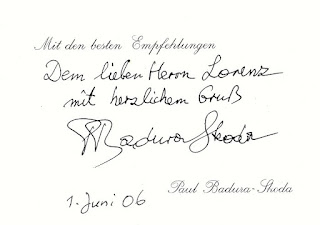 Mit den besten Empfehlungen
Dem lieben Herrn Lorenz
mit herzlichem Gruß
PBadura-Skoda
1. Juni 06
Paul Badura-Skoda